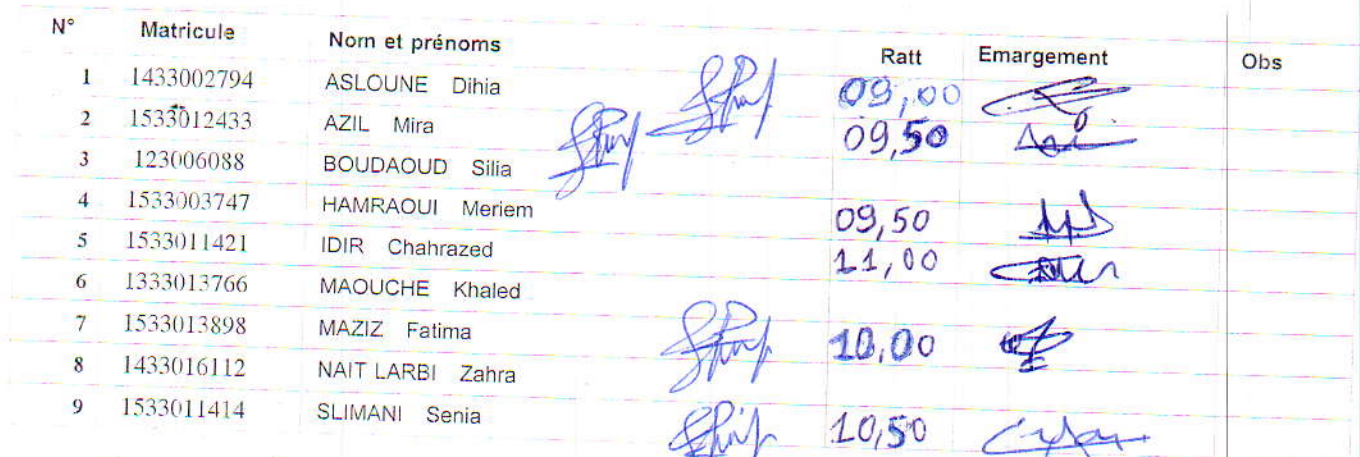 N° Matricule Nom et prénoms Ratt Emargement Obs
1 1433002794 ASLOUNE Dihia 09,00
2 1533012433 AZIL Mira 09,50
3 123006088 BOUDAOUD Silia
4 1533003747 HAMRAOUI Meriem 09,50
5 1533011421 IDIR Chahrazed 11,00
6 1333013766 MAOUCHE Khaled
7 1533013898 MAZIZ Fatima 10,00
8 1433016112 NAIT LARBI Zahra
9 1533011414 SLIMANI Senia 10,50